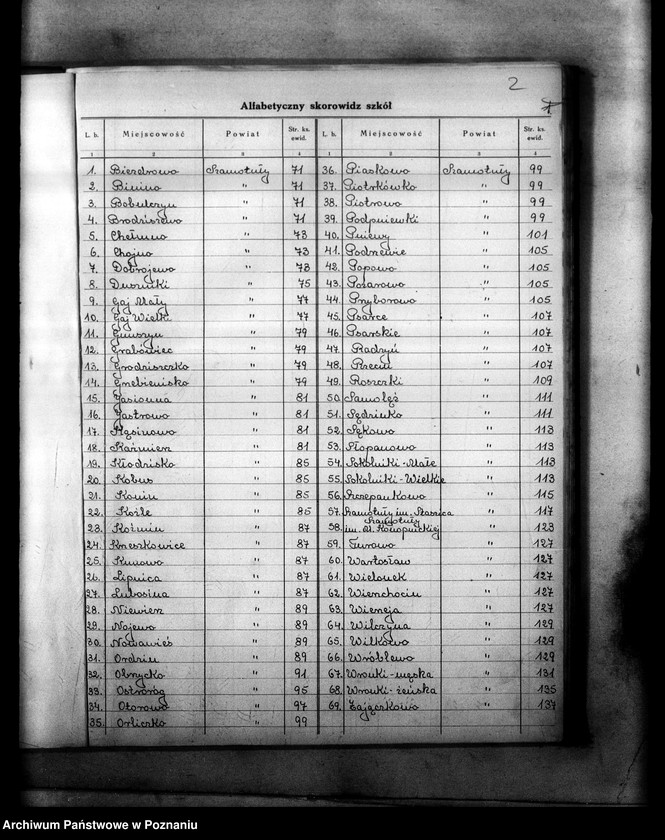 2
Alfabetyczny skorowidz szkół
L. b. Miejscowość Powiat Str. ks. ewid. L. b. Miejscowość Powiat Str. ks. ewid.
1 2 3 4 1 2 3 4
1. Biezdrowo Szamotuły 71 36. Piaskowo Szamotuły 99
2. Binino " 71 37. Piotrkówko " 99
3. Bobulczyn " 71 38. Piotrowo " 99
4. Brodziszewo " 71 39. Podpniewki " 99
5. Chełmno " 73 40. Pniewy " 101
6. Chojno " 73 41. Podrzewie " 105
7. Dobrojewo " 73 42. Popowo " 105
8. Duszniki " 75 43. Pożarowo " 105
9. Gaj Mały " 77 44. Przyborowo " 105
10. Gaj Wielki " 77 45. Psarce " 107
11. " 79 46. Psarskie " 107
12. Grabówiec " 79 47. Radzyń " 107
13. Grodziszczko " 79 48. Rzecin " 107
14. Grzebienisko " 79 49. Roszczki " 109
15. Jasionna " 81 50. Samołęż " 111
16. Jastrowo " 81 51. Sędzinko " 111
17. Kąsinowo " 81 52. Sękowo " 113
18. Kaźmierz " 81 53. Słopanowo " 113
19. Kłodzisko " 85 54. Sokolniki-Małe " 113
20. Kobus " 85 55. Sokolniki-Wielkie " 113
21. Konin " 85 56. Szczepankowo " 115
22. Koźle " 85 57. Szamotuły im. Staszica " 117
23. Koźmin " 87 58. Szamotuły im. M. Konopnickiej " 123
24. Krzeszkowice " 87 59. Turowo " 127
25. Kunowo " 87 60. Wartosław " 127
26. Lipnica " 87 61. Wielonek " 127
27. Lubosina " 87 62. Wierzchocin " 127
28. Niewierz " 89 63. Wierzeja " 127
29. Nojewo " 89 64. Wilczyna " 129
30. Nowawieś " 89 65. Wilkowo " 129
31. Ordzin " 89 66. Wróblewo " 129
32. Obrzycko " 91 67. Wronki-męska " 131
33. Ostroróg " 95 68. Wronki-żeńska " 135
34. Otorowo " 97 69. Zajączkowo " 137
35. Orliczko " 99
Archiwum Państwowe w Poznaniu